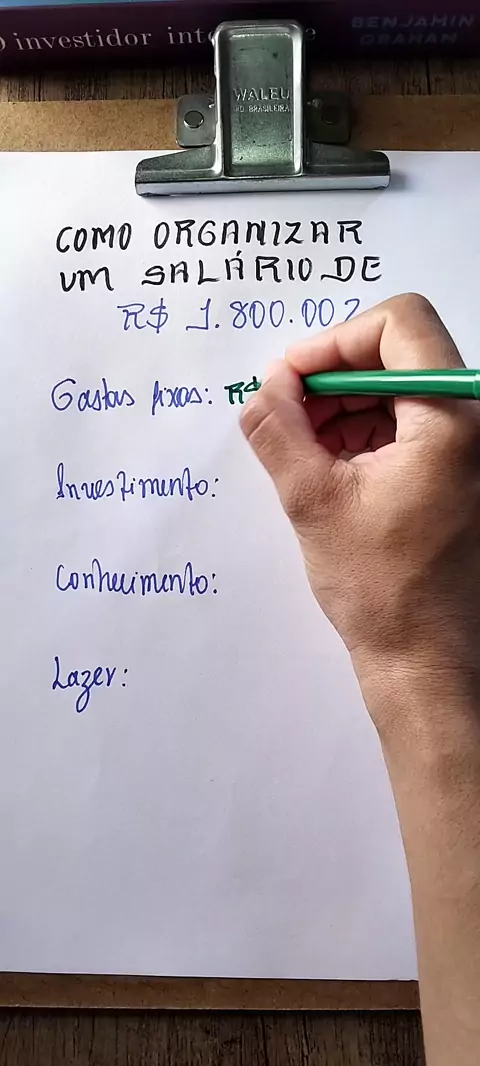 O investidor inte e
BENJAMIN
GRAHAM
WALEU
IND BRASILEIRA
COMO ORGANIZAR
UM SALÁRIO DE
R$ 1.800.00?
Gastos fixos: R$
Investimento:
Conhecimento:
Lazer: